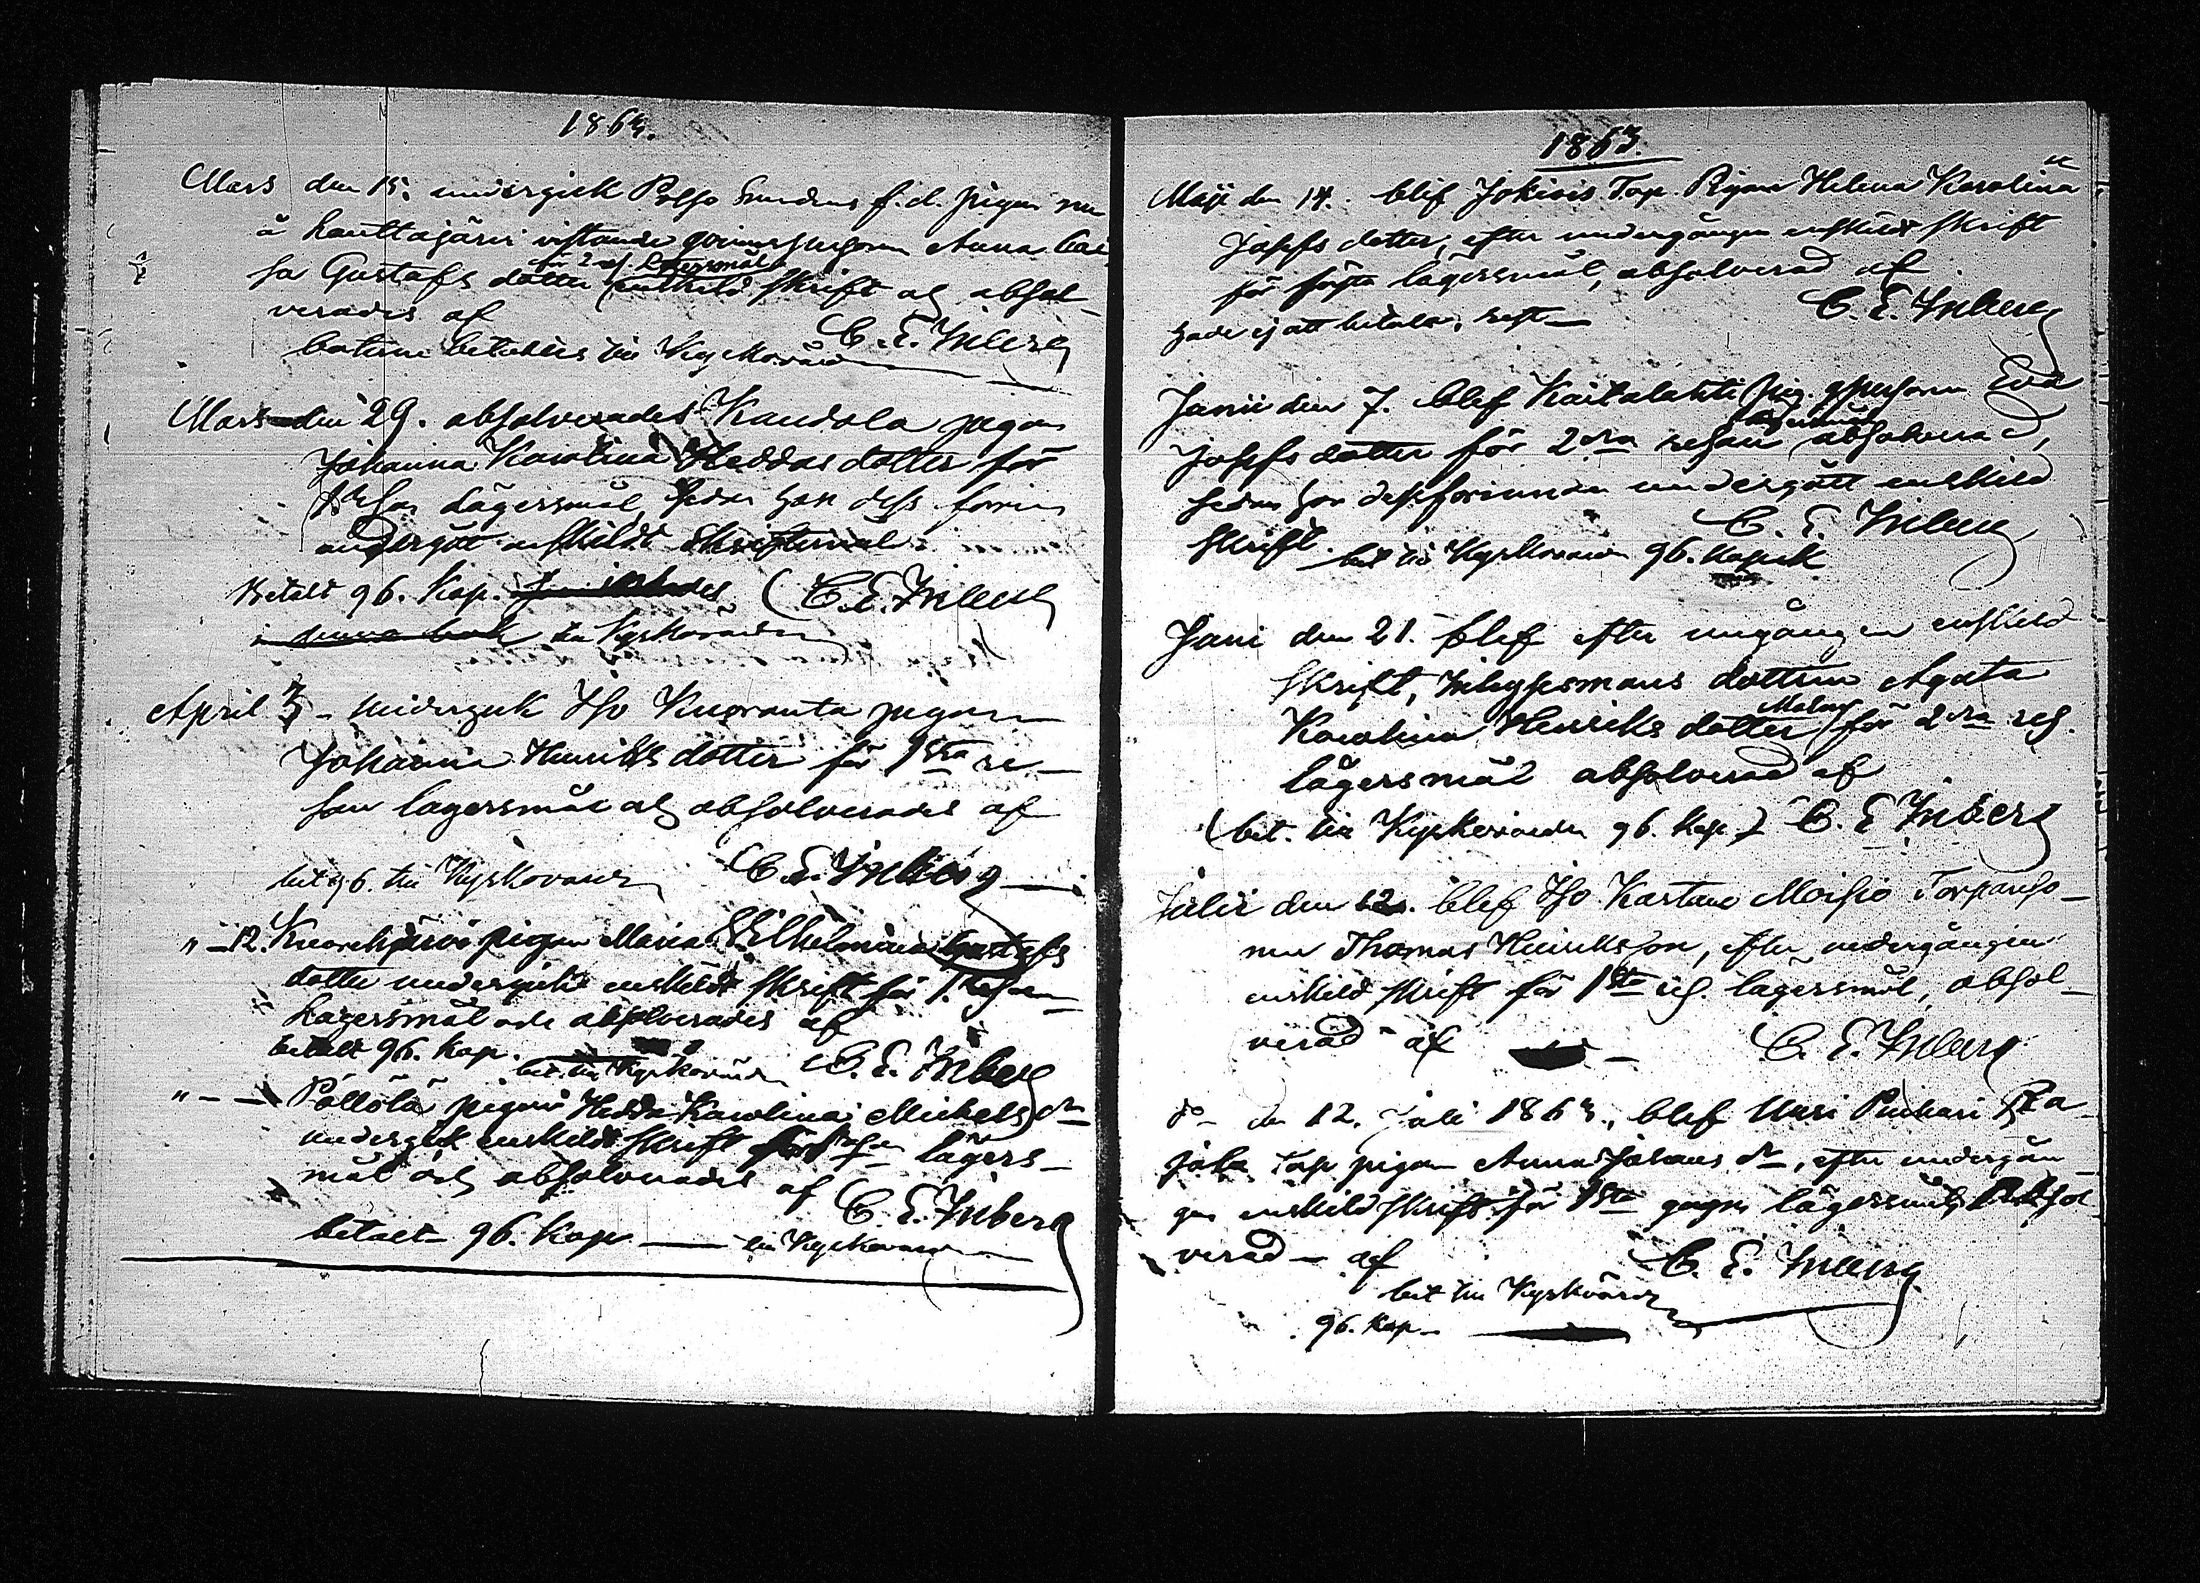 1863.
Mars den 15. undergick Polso Sundens f. d. pigan nu
å Lauttajärvi vistande qvinnspersonen Anna Cai
sa Gustafs dotter för 2. Lägersmål enskild skrift och absol-
verades af
C. E. Inberg
boten betaltes till Kyrkovärden
Mars den 29. absolverades Kandola pigan
Johanna Karolina Heddas dotter för
Lägersmål, sedan hon dess förin
undergått enskildt Skriftermål.
Betalt 96. Kop. C. E. Inberg
i denna bok till Kyrkovärden
April 3 - undergick Iso Kuoranta pigan
Johanna Henriks dotter för 1sta re-
san lägersmål och absolverades af
bet 96. till Kyrkovärd C. E. Inberg
" - 12. pigan Maria Wilhelmina Gustafs
dotter undergick enskildt skrift för 1. resan
Lägersmål och absolverades af
betalt 96. Kop. bet. till Kyrkovärden C. E. Inberg
" - - Pöllölä pigan Hedda Karolina Michels dr
undergick enskildt skrift lägers-
mål och absolverades af C. E. Inberg
betalt 96. Kop - till Kyrkovärden
1863.
Maji den 14. blef Jokiois Torp. Pigan Helena Karolina
Josefs dotter, efter undergången enskildt skrift
för första lägersmål, absolverad af
C. E. Inberg
hade ej att betala, rest -
Junii den 7. blef Kaitalahti pig. qpersonen Eva
Josefs dotter för 2dra resan lägersmål absolverad,
sedan hon dessförinnan undergått enskild
skrift. C. E. Inberg
bet till Kyrkovärden 96. Kopek
Juni den 21. blef efter ungången enskild
skrift, Inhysesmans dottern Agata
Karolina Henriks dotter för 2dra res.
lägersmål absolverad af
(bet. till Kyrkovärden 96. Kop.) C. E. Inberg
Julii den 12. blef Iso Kartano Moisio Torpareso-
nen Thomas Henriksson, efter undergången
enskild skrift för 1sta res. lägersmål, absol-
verad af C. E. Inberg
do - den 12. Juli 1863, blef Uusi Puihari Ra-
jala Torp pigan Anna Johans dr, efter undergån-
gen enskild skrift för 1sta gången lägersmål, absol
verad - af C. E. Inberg
bet till Kyrkvärden
96. Kop -